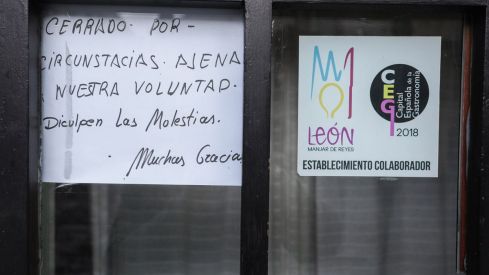 CERRADO POR
CIRCUNSTACIAS. AJENA
NUESTRA VOLUNTAD.
Diculpen Las Molestias.
Muchas Gracias
LEÓN
MANJAR DE REYES
CEG
Capital
Española de la
Gastronomía
2018
ESTABLECIMIENTO COLABORADOR